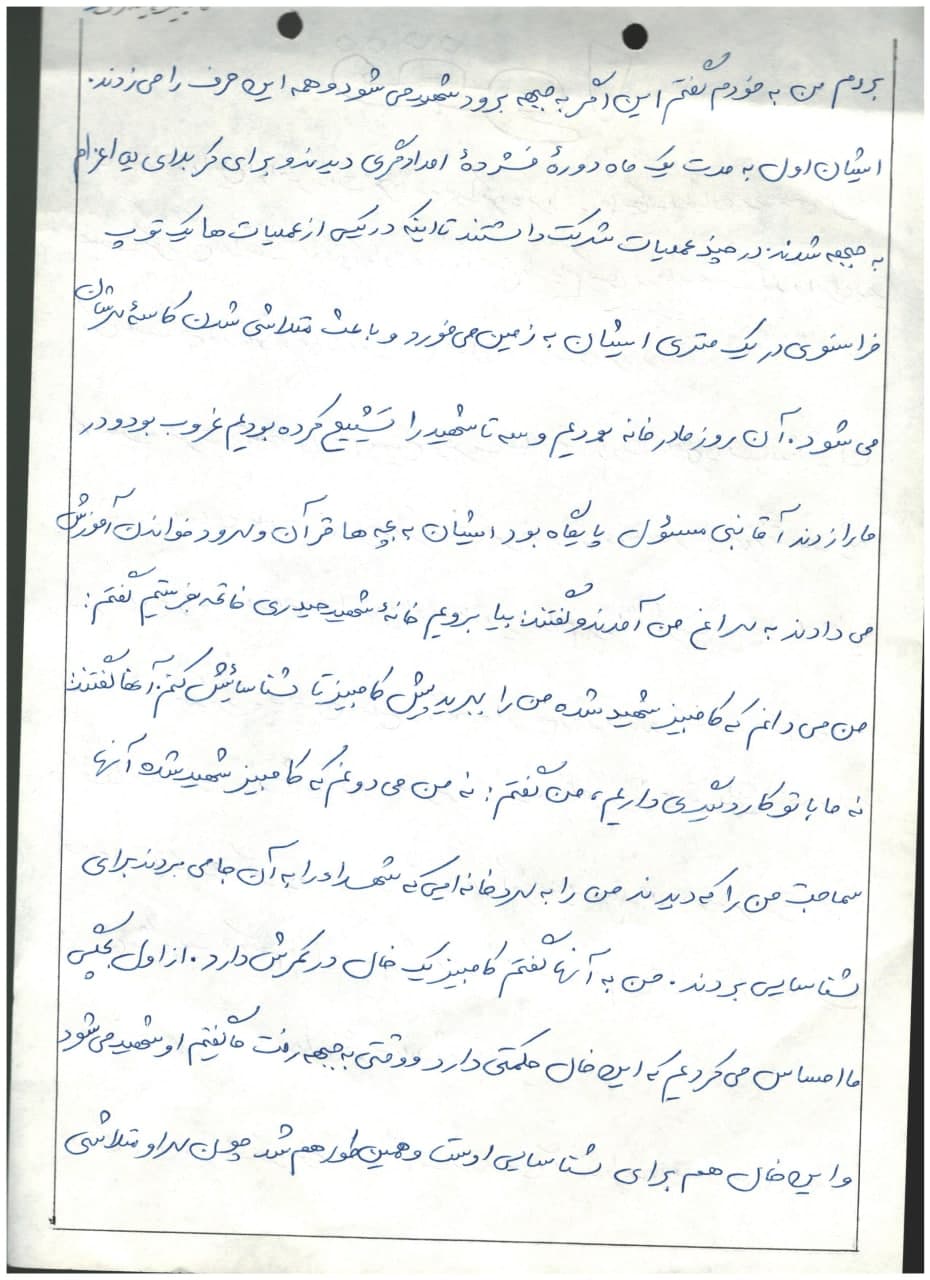 بردم من به خودم گفتم این اگر به جبهه برود شهید می شود و همه این حرف را می زدند.
ایشان اول به مدت یک ماه دورهٔ فشردهٔ امدادگری دیدند و برای کربلای یه اعزام
به جبهه شدند. در چند عملیات شرکت داشتند تا اینکه در یکی از عملیات ها یک توپ
فرانسوی در یک متری ایشان به زمین می خورد و باعث متلاشی شدن کاسهٔ سرشان
می شود. آن روز ما در خانه بودیم و سه تا شهید را تشییع کرده بودیم غروب بود و در
ما را زدند آقا نبی مسئول پایگاه بود ایشان به بچه ها قرآن و سرود خواندن آموزش
می دادند به سراغ من آمدند و گفتند: بیا برویم خانهٔ شهید حیدری فاتحه بفرستیم گفتم:
من می دانم که کامبیز شهید شده من را ببرید پیش کامبیز تا شناسائیش کنم. آنها گفتند:
نه ما با تو کار دیگری داریم، من گفتم: نه من می دونم که کامبیز شهید شده آنها
سماجت من را که دیدند من را به سردخانه ایی که شهدا را به آن جا می بردند برای
شناسایی بردند. من به آنها گفتم کامبیز یک خال در کمرش دارد. از اول بچگی
ما احساس می کردیم که این خال حکمتی دارد و وقتی به جبهه رفت ما گفتیم او شهید می شود
و این خال هم برای شناسایی اوست و همین طور هم شد چون سر او متلاشی